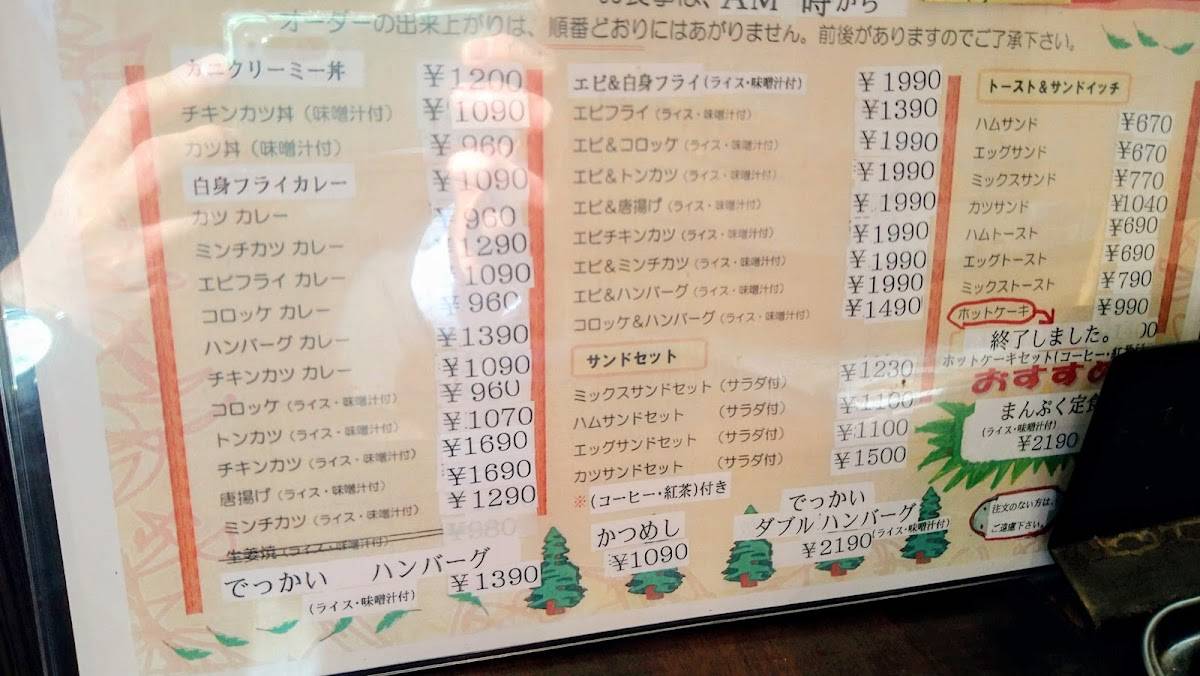 お食事は、AM 時から
オーダーの出来上がりは、順番どおりにはあがりません。前後がありますのでご了承下さい。
カニクリーミー丼 ¥1200
チキンカツ丼（味噌汁付） ¥1090
カツ丼（味噌汁付） ¥960
白身フライカレー ¥1090
カツ カレー ¥960
ミンチカツ カレー ¥1290
エビフライ カレー ¥1090
コロッケ カレー ¥960
ハンバーグ カレー ¥1390
チキンカツ カレー ¥1090
コロッケ（ライス・味噌汁付） ¥960
トンカツ（ライス・味噌汁付） ¥1070
チキンカツ（ライス・味噌汁付） ¥1690
唐揚げ（ライス・味噌汁付） ¥1690
ミンチカツ（ライス・味噌汁付） ¥1290
生姜焼（ライス・味噌汁付） ¥980
でっかい ハンバーグ
(ライス・味噌汁付) ¥1390
エビ&白身フライ(ライス・味噌汁付) ¥1990
エビフライ（ライス・味噌汁付） ¥1390
エビ&コロッケ（ライス・味噌汁付） ¥1990
エビ&トンカツ（ライス・味噌汁付） ¥1990
エビ&唐揚げ（ライス・味噌汁付） ¥1990
エビチキンカツ（ライス・味噌汁付） ¥1990
エビ&ミンチカツ（ライス・味噌汁付） ¥1990
エビ&ハンバーグ（ライス・味噌汁付） ¥1990
コロッケ&ハンバーグ（ライス・味噌汁付） ¥1490
サンドセット
ミックスサンドセット（サラダ付） ¥1230
ハムサンドセット（サラダ付） ¥1100
エッグサンドセット（サラダ付） ¥1100
カツサンドセット（サラダ付） ¥1500
※(コーヒー・紅茶)付き
かつめし
¥1090
でっかい
ダブルハンバーグ
(ライス・味噌汁付)
¥2190
トースト&サンドイッチ
ハムサンド ¥670
エッグサンド ¥670
ミックスサンド ¥770
カツサンド ¥1040
ハムトースト ¥690
エッグトースト ¥690
ミックストースト ¥790
ホットケーキ ¥990
終了しました。
ホットケーキセット(コーヒー・紅茶
おすすめ
まんぷく定食
(ライス・味噌汁付)
¥2190
注文のない方は、
ご遠慮下さい。